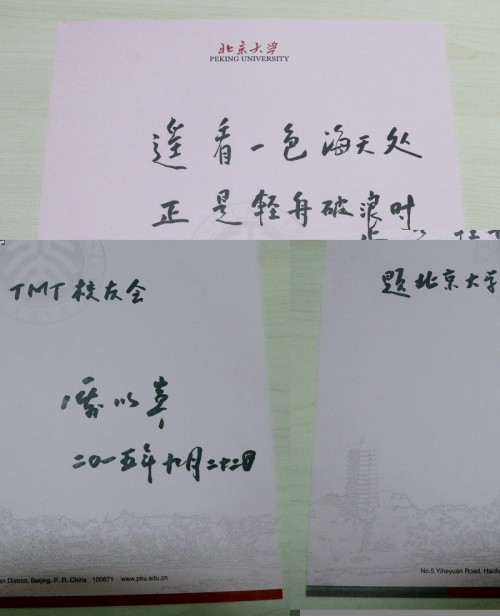 北京大学
PEKING UNIVERSITY
遥看一色海天处
正是轻舟破浪时
TMT校友会
题北京大学
二〇一五年十月二十二日
an District, Beijing, P. R. China 100871 www.pku.edu.cn
No.5 Yiheyuan Road, Haidia